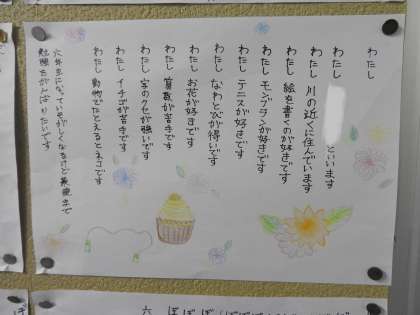 わたし
わたし といいます
わたし 川の近くに住んでいます
わたし 絵を書くのが好きです
わたし モンブランが好きです
わたし テニスが好きです
わたし なわとびが得いです
わたし お花が好きです
わたし 算数が苦手です
わたし 字のクセが強いです
わたし イチゴが苦手です
わたし 動物でたとえるとネコです
六年生になっていそがしくなるけど最後まで
勉強をがんばりたいです